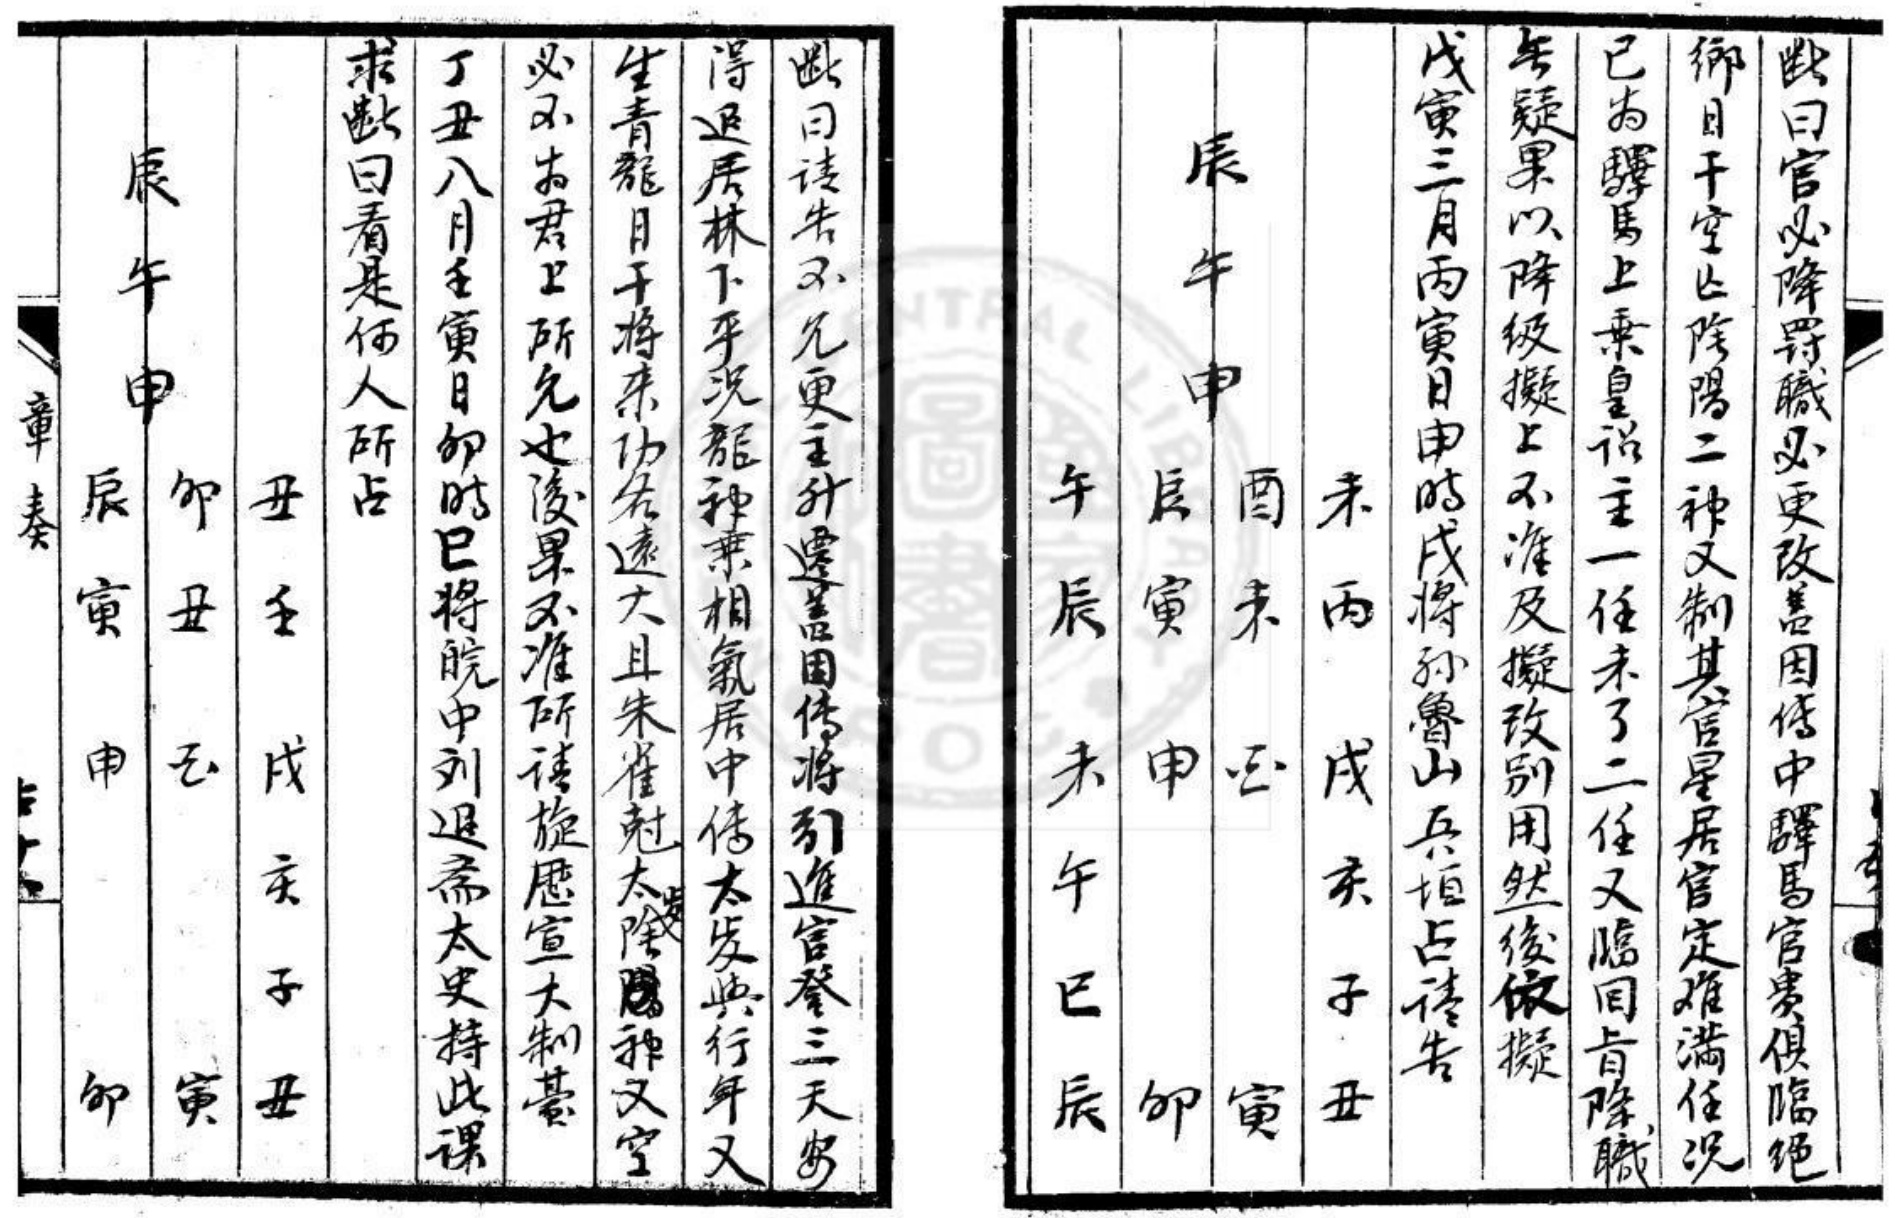 断曰官必降罰職必更改盖因傳中驛馬官貴俱臨絕
鄉日干空亡陰陽二神又制其官星居官定难滿任况
巳为驛馬上乘皇詔主一任未了二任又臨回㫖降職
无疑果以降级擬上不准及擬改别用然後依擬
戊寅三月丙寅日申時戌将孙魯山兵垣占請告
辰午申
未丙 戌亥子丑
酉未 酉 寅
辰寅 申 卯
午辰 未午巳辰
断曰請告不允更主升遷盖因傳将引進官登三天安
得退居林下乎况龍神乘相氣居中傳太歲與行年又
生青龍日干将来功名遠大且朱雀尅太歲陰神又空
必不为君上所允也後果不准所請旋歷宣大制臺
丁丑八月壬寅日卯時巳将皖中刘退斋太史持此課
求断曰看是何人所占
辰午申
丑壬 戌亥子丑
卯丑 酉 寅
辰寅 申 卯
章奏